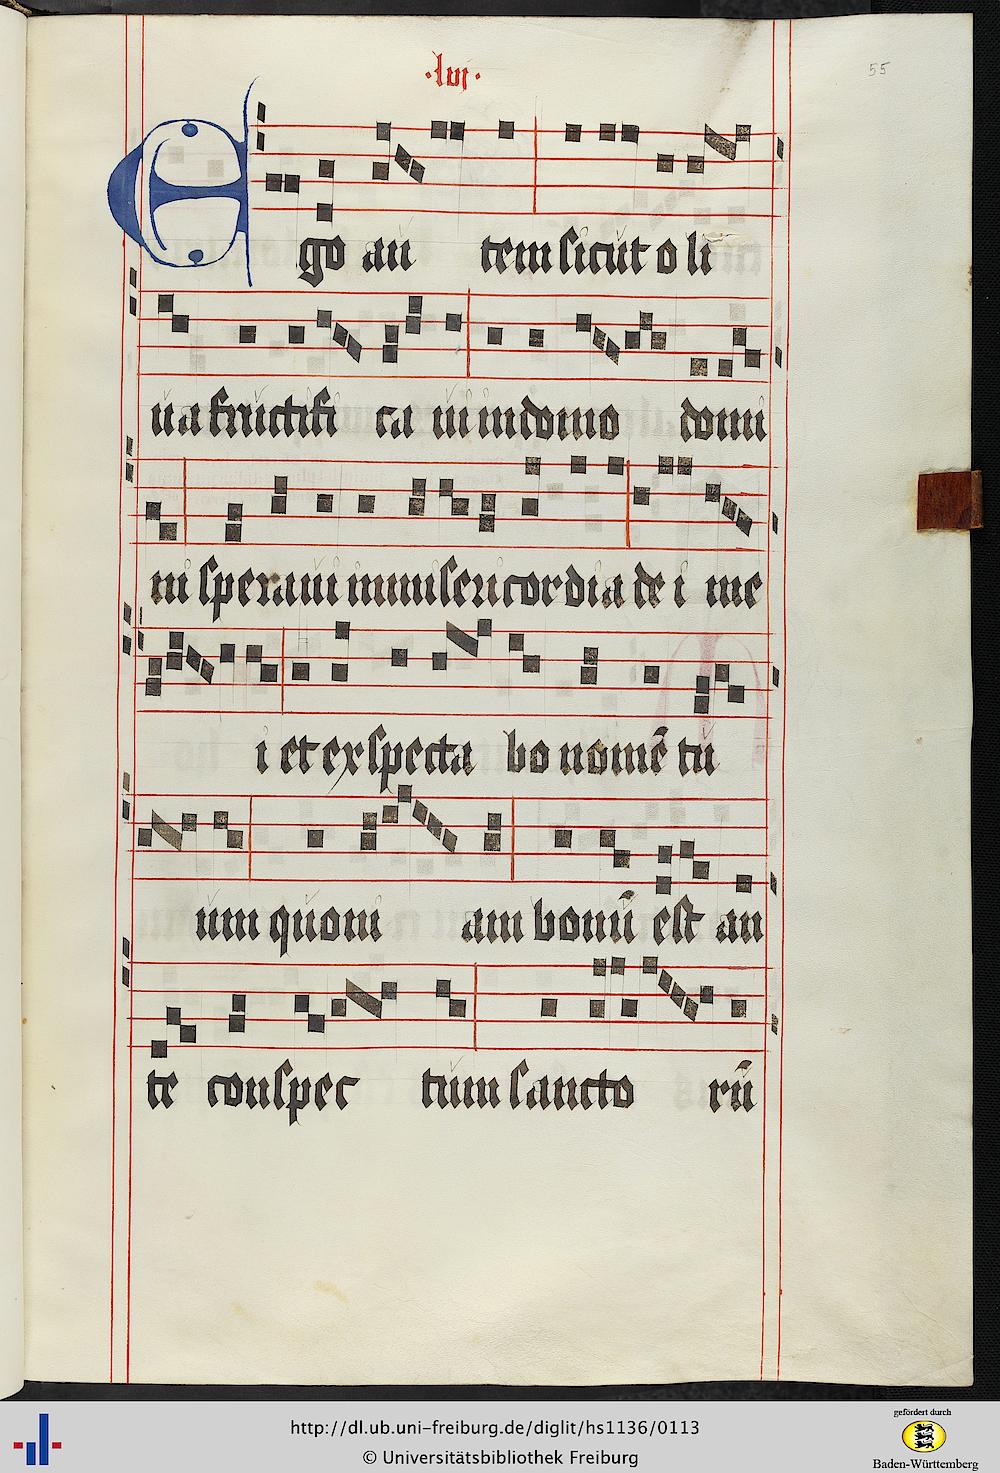 ·lvj·
55
Ego au tem sicut oli
ua fructifi ca ui in domo domi
ni speraui in misericordia dei me
i et exspecta bo nomē tu
um quoni am bonū est an
te conspec tum sancto rū
http://dl.ub.uni-freiburg.de/diglit/hs1136/0113
© Universitätsbibliothek Freiburg
gefördert durch
Baden-Württemberg